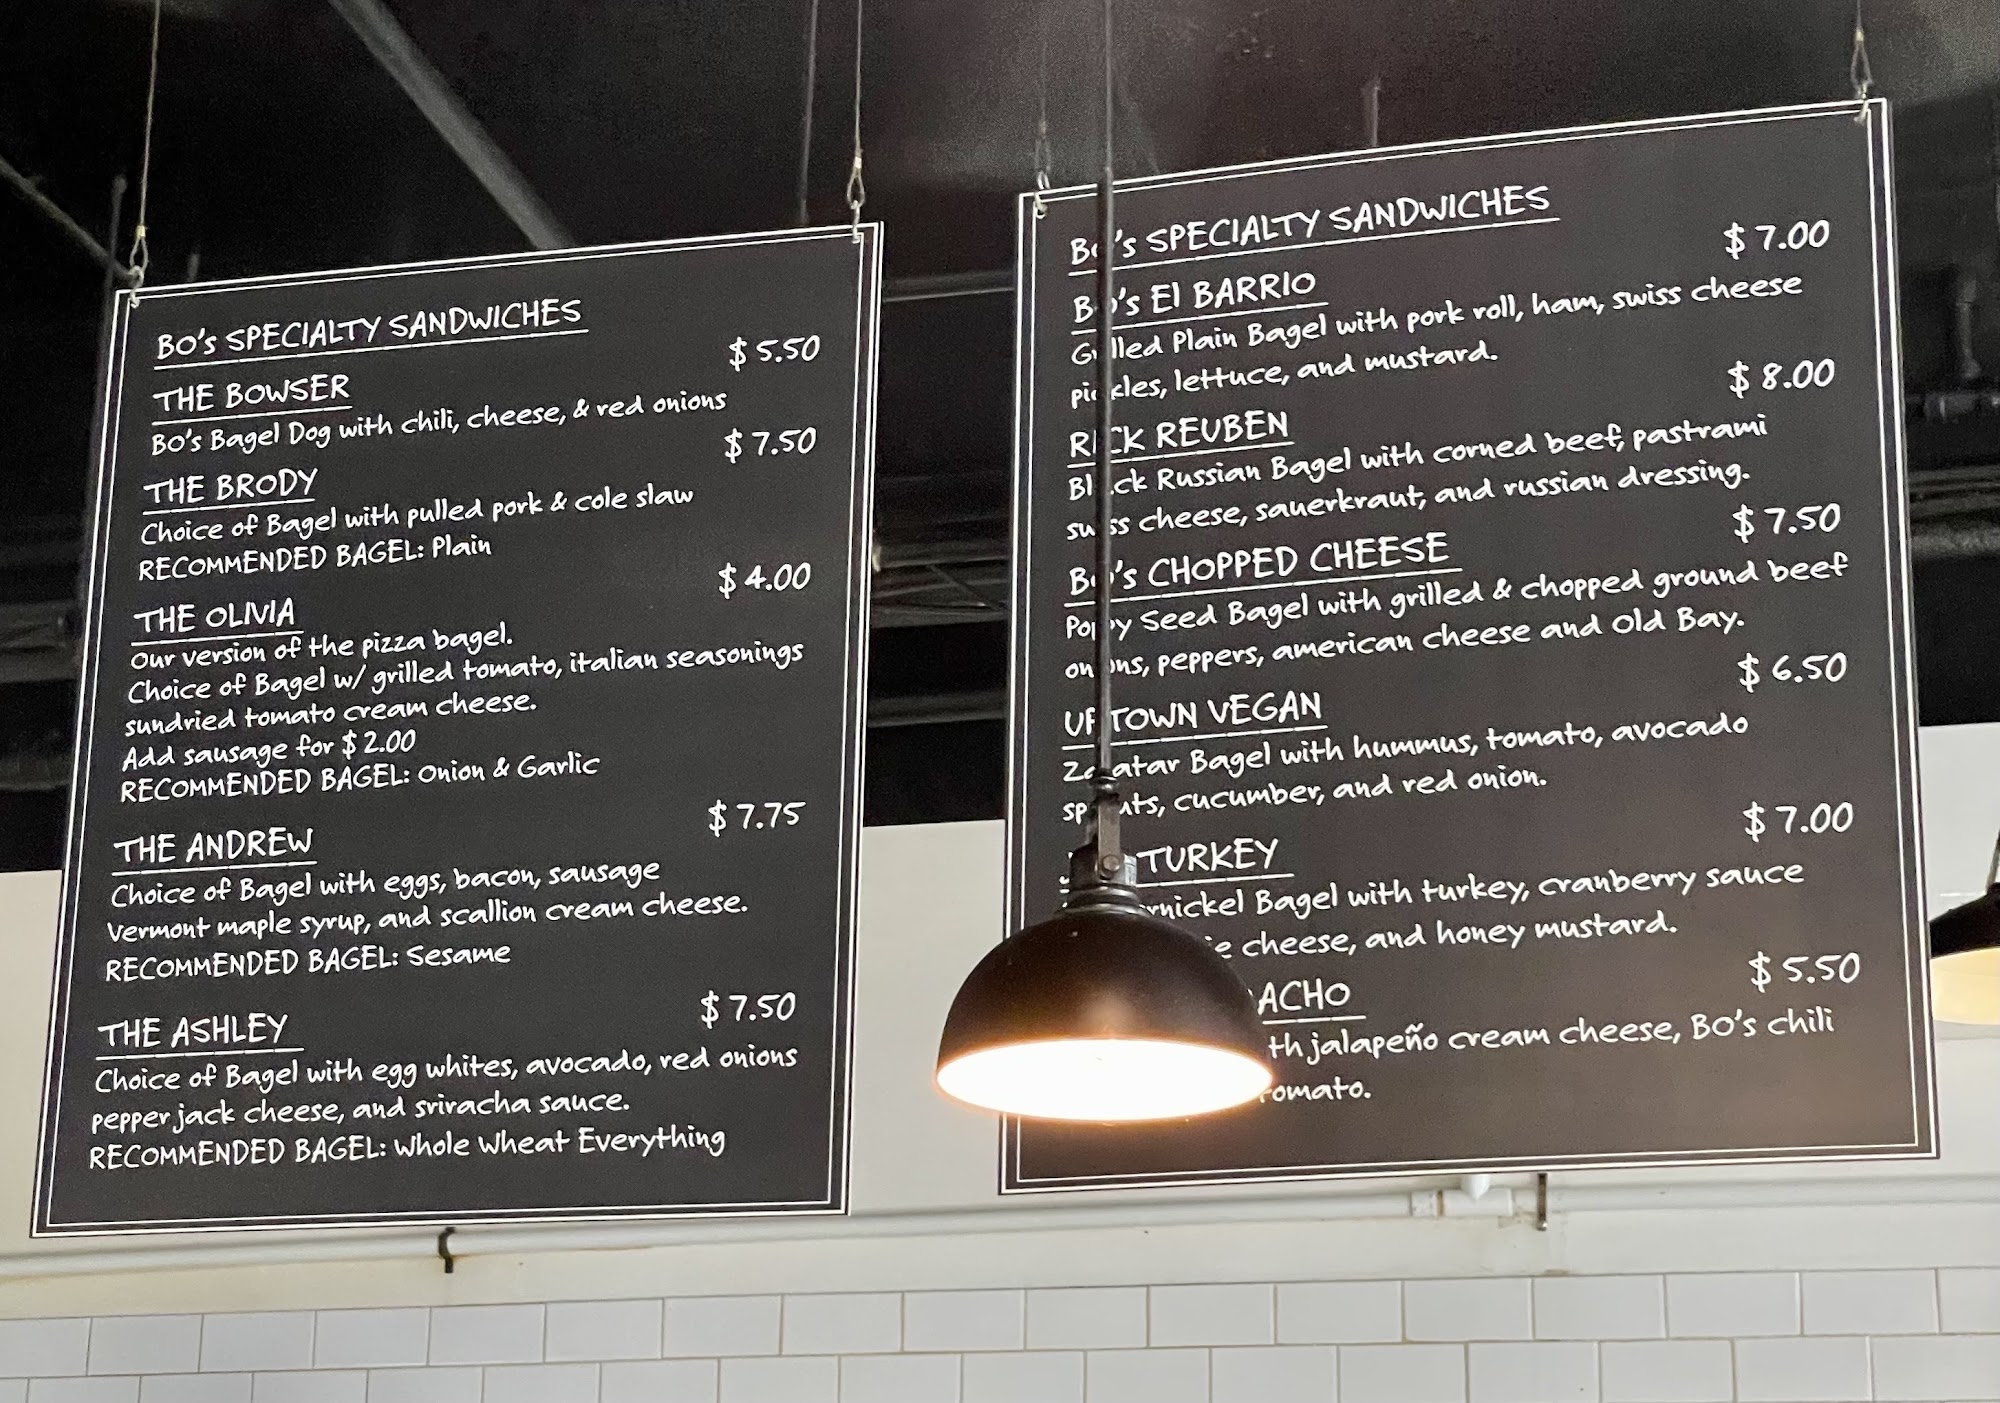 BO's SPECIALTY SANDWICHES
$ 5.50
THE BOWSER
BO's Bagel Dog with chili, cheese, & red onions
$ 7.50
THE BRODY
Choice of Bagel with pulled pork & cole slaw
RECOMMENDED BAGEL: Plain
$ 4.00
THE OLIVIA
Our version of the pizza bagel.
Choice of Bagel w/ grilled tomato, italian seasonings
sundried tomato cream cheese.
Add sausage for $ 2.00
RECOMMENDED BAGEL: Onion & Garlic
$ 7.75
THE ANDREW
Choice of Bagel with eggs, bacon, sausage
Vermont maple syrup, and scallion cream cheese.
RECOMMENDED BAGEL: Sesame
$ 7.50
THE ASHLEY
Choice of Bagel with egg whites, avocado, red onions
pepper jack cheese, and sriracha sauce.
RECOMMENDED BAGEL: Whole Wheat Everything
BO's SPECIALTY SANDWICHES
$ 7.00
BO's El BARRIO
Grilled Plain Bagel with pork roll, ham, swiss cheese
pickles, lettuce, and mustard.
$ 8.00
RICK REUBEN
Black Russian Bagel with corned beef, pastrami
swiss cheese, sauerkraut, and russian dressing.
$ 7.50
BO's CHOPPED CHEESE
Poppy Seed Bagel with grilled & chopped ground beef
onions, peppers, american cheese and Old Bay.
$ 6.50
UPTOWN VEGAN
Zaatar Bagel with hummus, tomato, avocado
sprouts, cucumber, and red onion.
$ 7.00
TURKEY
Bagel with turkey, cranberry sauce
cheese, and honey mustard.
$ 5.50
jalapeño cream cheese, BO's chili
tomato.